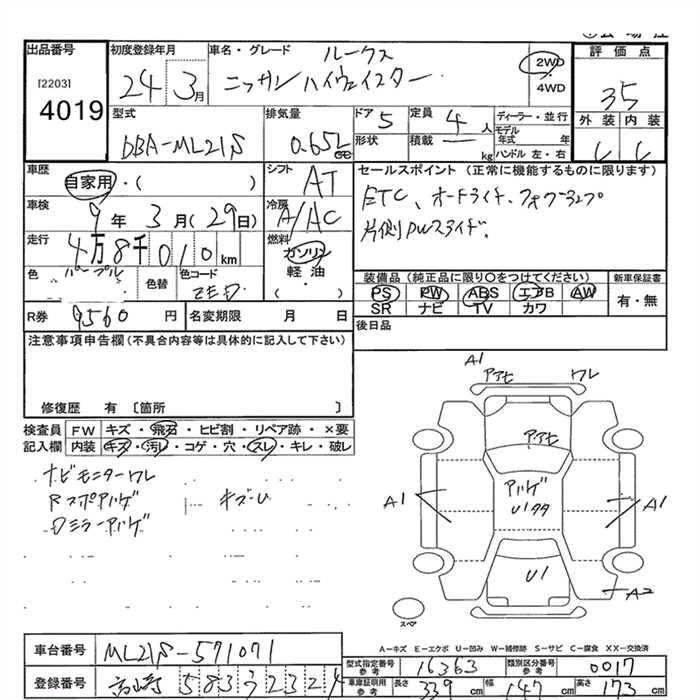 出品番号
[2203]
4019
初度登録年月
24 3月
車名・グレード
ルークス
ニッサン ハイウェイスター
2WD
・
4WD
評価点
35
外装 内装
C C
型式
DBA-ML21S
排気量
0.65L
ドア 5
形状
定員 4人
積載 kg
ディーラー・並行
モデル年式 年
ハンドル 左・右
車歴
自家用・( )
シフト
AT
セールスポイント (正常に機能するものに限ります)
ETC、オートライト、フォグランプ
片側PWスライド、
車検
9年 3月(29日)
冷房
A/AC
走行
4万8千010km
燃料
ガソリン
軽・油
( )
色
パープル
色替
色コード
ZED
装備品(純正品に限り○をつけてください)
PS PW ABS エアB AW
SR ナビ TV カワ
新車保証書
有・無
R券 9560円
名変期限 月 日
後日品
注意事項申告欄(不具合内容等は具体的に記入して下さい)
修復歴 有 〔箇所 〕
検査員記入欄
FW キズ・飛石・ヒビ割・リペア跡・×要
内装 キズ・汚レ・コゲ・穴・スレ・キレ・破レ
ナビモニターワレ
Rスポアハゲ キズ・U
Dミラーアハゲ
A1
アアセ ワレ
アアセ
アハゲ
U1タタ
A1 A1
U1
A2
スペア
A-キズ E-エクボ U-凹み W-補修跡 S-サビ C-腐食 XX-交換済
車台番号 ML21S-571071
型式指定番号 参考 16363
類別区分番号 参考 0017
登録番号 高崎 583 2324
車庫証明用 参考 長さ 339cm 幅 147cm 高さ 173cm